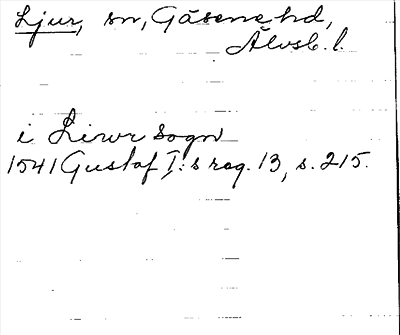 Ljur, sn, Gäsene hd,
Älvsb. l.
i Liwr sogn
1541 Gustaf I:s reg. 13, s. 215.